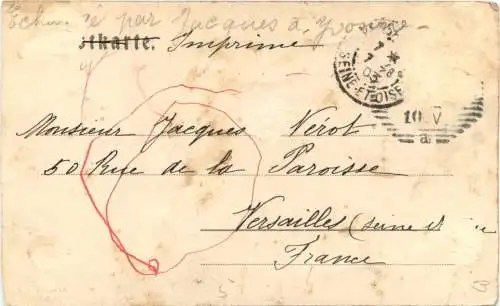 Echangé par Jacques à Yvonne
stkarte. Imprimé
SEINE-ET-OISE
7 *
7 28
03
10 V
a
Monsieur Jacques Nérot
50 Rue de la Paroisse
Versailles (seine et
France
5